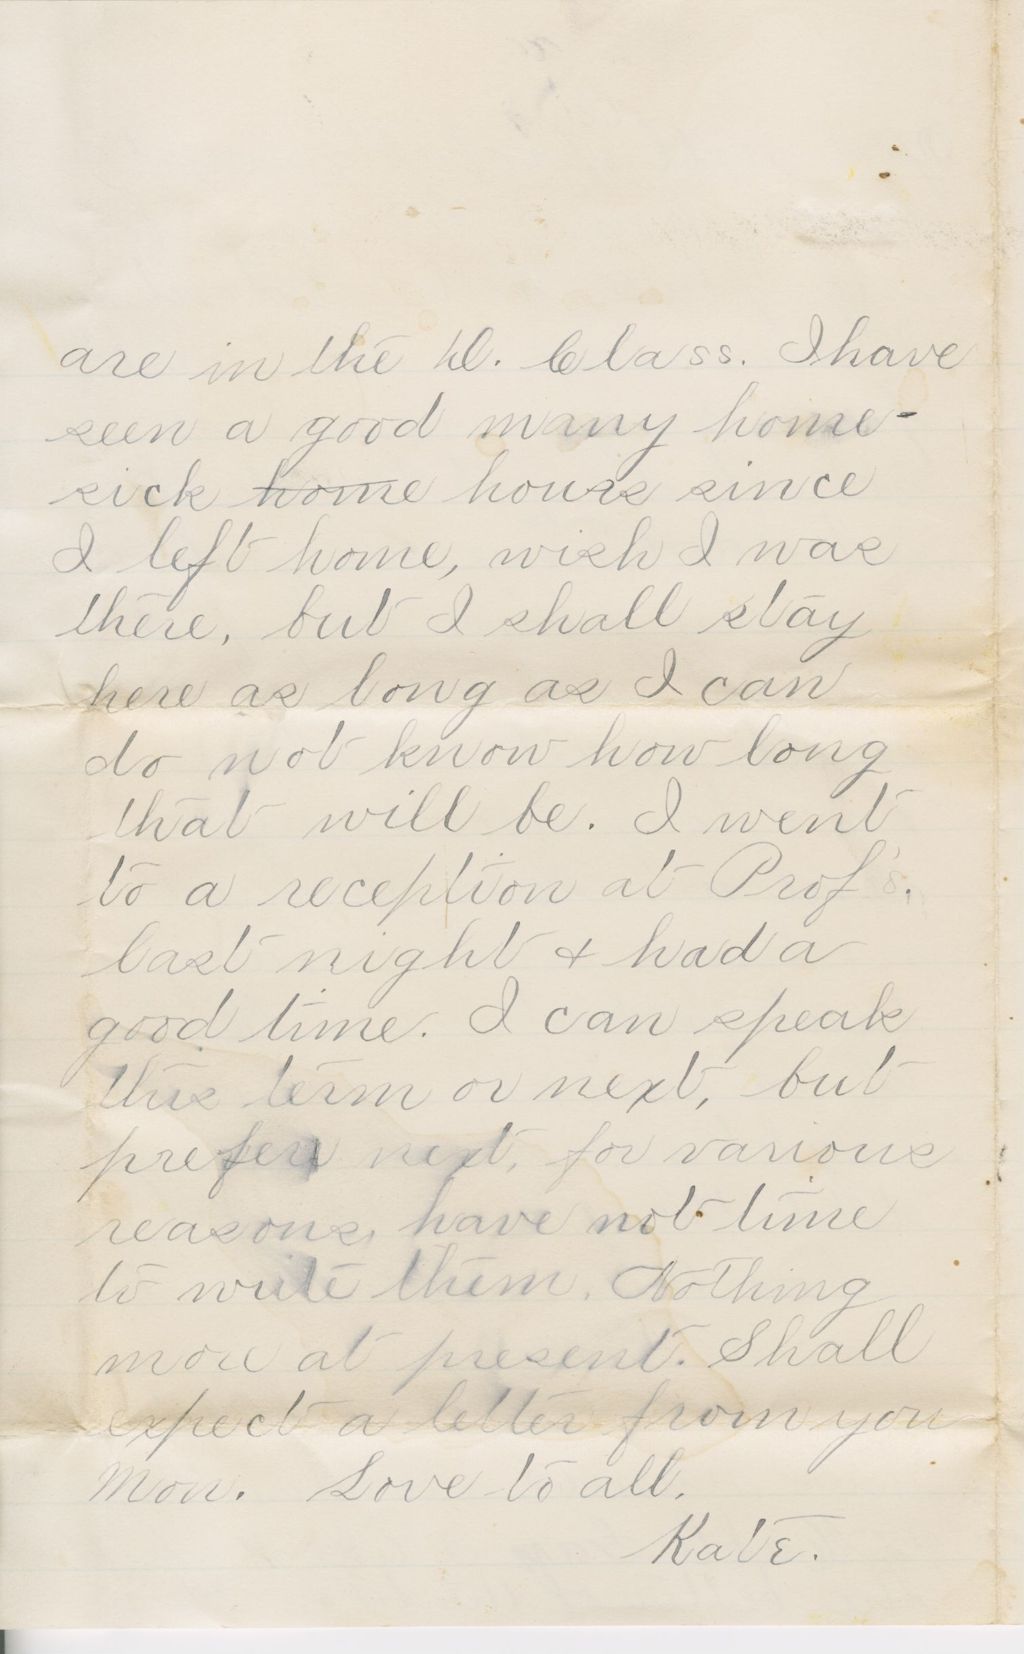 are in the D. Class. I have
seen a good many home-
sick home hours since
I left home, wish I was
there, but I shall stay
here as long as I can
do not know how long
that will be. I went
to a reception at Prof's.
last night & had a
good time. I can speak
this term or next, but
prefer next, for various
reasons, have not time
to write them. Nothing
more at present. Shall
expect a letter from you
Mon. Love to all.
Kate.